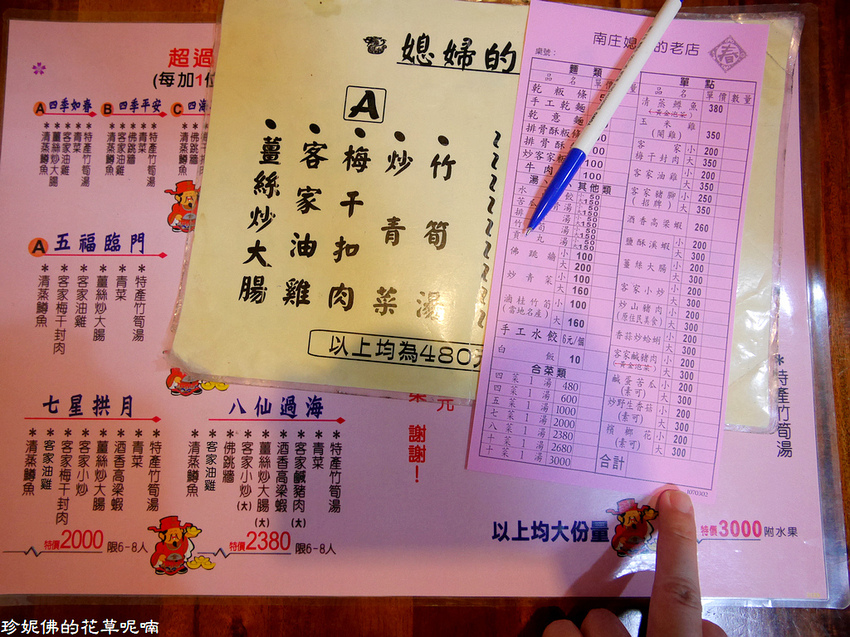 超過
(每加1位
A 四季如春
B 四季平安
C 四海
*特產竹筍湯
*青菜
*客家油雞
*薑絲炒大腸
*清蒸鱒魚
*特產竹筍湯
*青菜
*佛跳牆
*客家油雞
*清蒸鱒魚
A 五福臨門
*特產竹筍湯
*青菜
*薑絲炒大腸
*客家油雞
*客家梅干封肉
*清蒸鱒魚
七星拱月
*特產竹筍湯
*青菜
*酒香高梁蝦
*薑絲炒大腸
*客家小炒
*客家梅干封肉
*客家油雞
*清蒸鱒魚
特價2000 限6-8人
八仙過海
*特產竹筍湯
*青菜
*客家鹹豬肉(大)
*酒香高梁蝦
*薑絲炒大腸(大)
*客家小炒(大)
*佛跳牆
*客家油雞
*清蒸鱒魚
特價2380 限6-8人
元
謝謝!
以上均大份量
特價3000附水果
*特產竹筍湯
媳婦的
A
•竹筍湯
•炒青菜
•梅干扣肉
•客家油雞
•薑絲炒大腸
以上均為480元
南庄媳 的老店
春
桌號:
麵類
品名 單價 數量
乾板條
手工乾麵
乾意麵
排骨酥板 100
排骨酥 100
炒客家 100
牛肉 100
湯 其他類
佛跳牆 小 100
大 200
炒青菜 小 100
大 160
滷桂竹筍 小 100
(當地名產) 大 160
手工水餃 6元/個
白飯 10
合菜類
四菜1湯 480
四菜1湯 600
五菜1湯 1000
七菜1湯 2000
八菜1湯 2380
十菜1湯 2680
十菜1湯 3000
單點
品名 單價 數量
清蒸鱒魚 380
(黃金泡菜)
玉米雞 350
(閹雞)
客家 小 200
梅干封肉 大 350
客家油雞 小 200
大 350
客家豬腳 小 250
(招牌) 大 350
酒香高梁蝦 260
鹽酥溪蝦 小 200
大 300
薑絲大腸 小 200
大 300
客家小炒 小 200
大 300
炒山豬肉 小 200
(原住民美食) 大 300
香菇炒蛤蜊 小 200
大 300
客家鹹豬肉 小 200
(黃金泡菜) 大 300
鹹蛋苦瓜 小 200
(素可) 大 300
炒野生香菇 小 200
(素可) 大 300
檳榔花 小 200
(素可) 大 300
合計
1070302
珍妮佛的花草呢喃